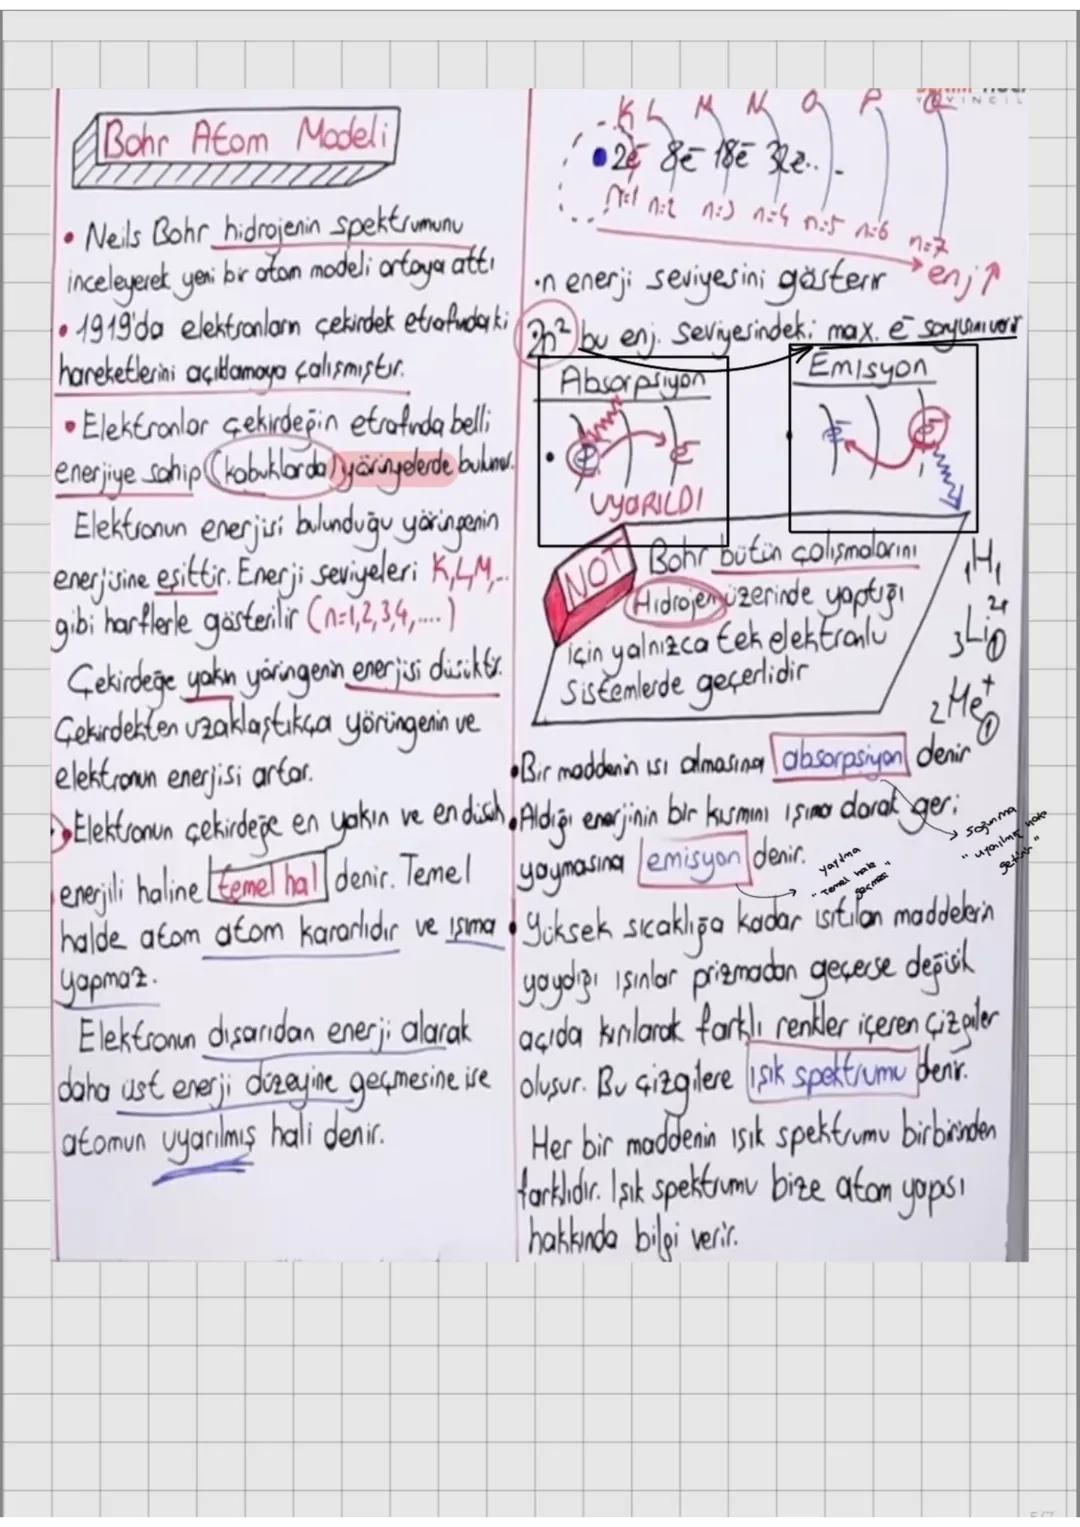 Bohr Atom Modeli
• Neils Bohr hidrojenin spektrumunu
inceleyerek yeni bir atom modeli ortaya attı
• 1919'da elektronların çekirdek etrafındaki
hareketlerini açıklamaya çalışmıştır.
• Elektronlar çekirdeğin etrafında belli
enerjiye sahip (kabuklarda) yörüngelerde bulunur.
Elektronun enerjisi bulunduğu yörüngenin
enerjisine eşittir. Enerji seviyeleri K,L,M,..
gibi harflerle gösterilir (n=1,2,3,4,....)
Çekirdeğe yakın yörüngenin enerjisi düşüktür.
Çekirdekten uzaklaştıkça yörüngenin ve
elektronun enerjisi artar.
Elektronun çekirdeğe en yakın ve en düşük
enerjili haline temel hal denir. Temel
halde atom atom kararlıdır ve ışıma
yapmaz.
Elektronun dışarıdan enerji alarak
daha üst enerji düzeyine geçmesine ise
atomun uyarılmış hali denir.
K L M N O P Q
2e⁻ 8e⁻ 18e⁻ 32e...
n=1 n=2 n=3 n=4 n=5 n=6 n=7
enj↑
•n enerji seviyesini gösterir
2n² bu enj. seviyesindeki max. e⁻ sayısını verir
Absorpsiyon
e⁻ e⁻
UYARILDI
Emisyon
e⁻ e⁻
NOT
Bohr bütün çalışmalarını
Hidrojen üzerinde yaptığı
için yalnızca tek elektronlu
sistemlerde geçerlidir
₁H₁
₃Li²⁺ ①
₂He⁺ ①
• Bir maddenin ısı almasına absorpsiyon denir
• Aldığı enerjinin bir kısmını ışıma olarak geri
yaymasına emisyon denir.
soğurma
"uyarılmış hale
yayılma
"temel hale
geçmesi"
• Yüksek sıcaklığa kadar ısıtılan maddelerin
yaydığı ışınlar prizmadan geçerse değişik
açıda kırılarak farklı renkler içeren çizgiler
oluşur. Bu çizgilere ışık spektrumu denir.
Her bir maddenin ışık spektrumu birbirinden
farklıdır. Işık spektrumu bize atom yapısı
hakkında bilgi verir.